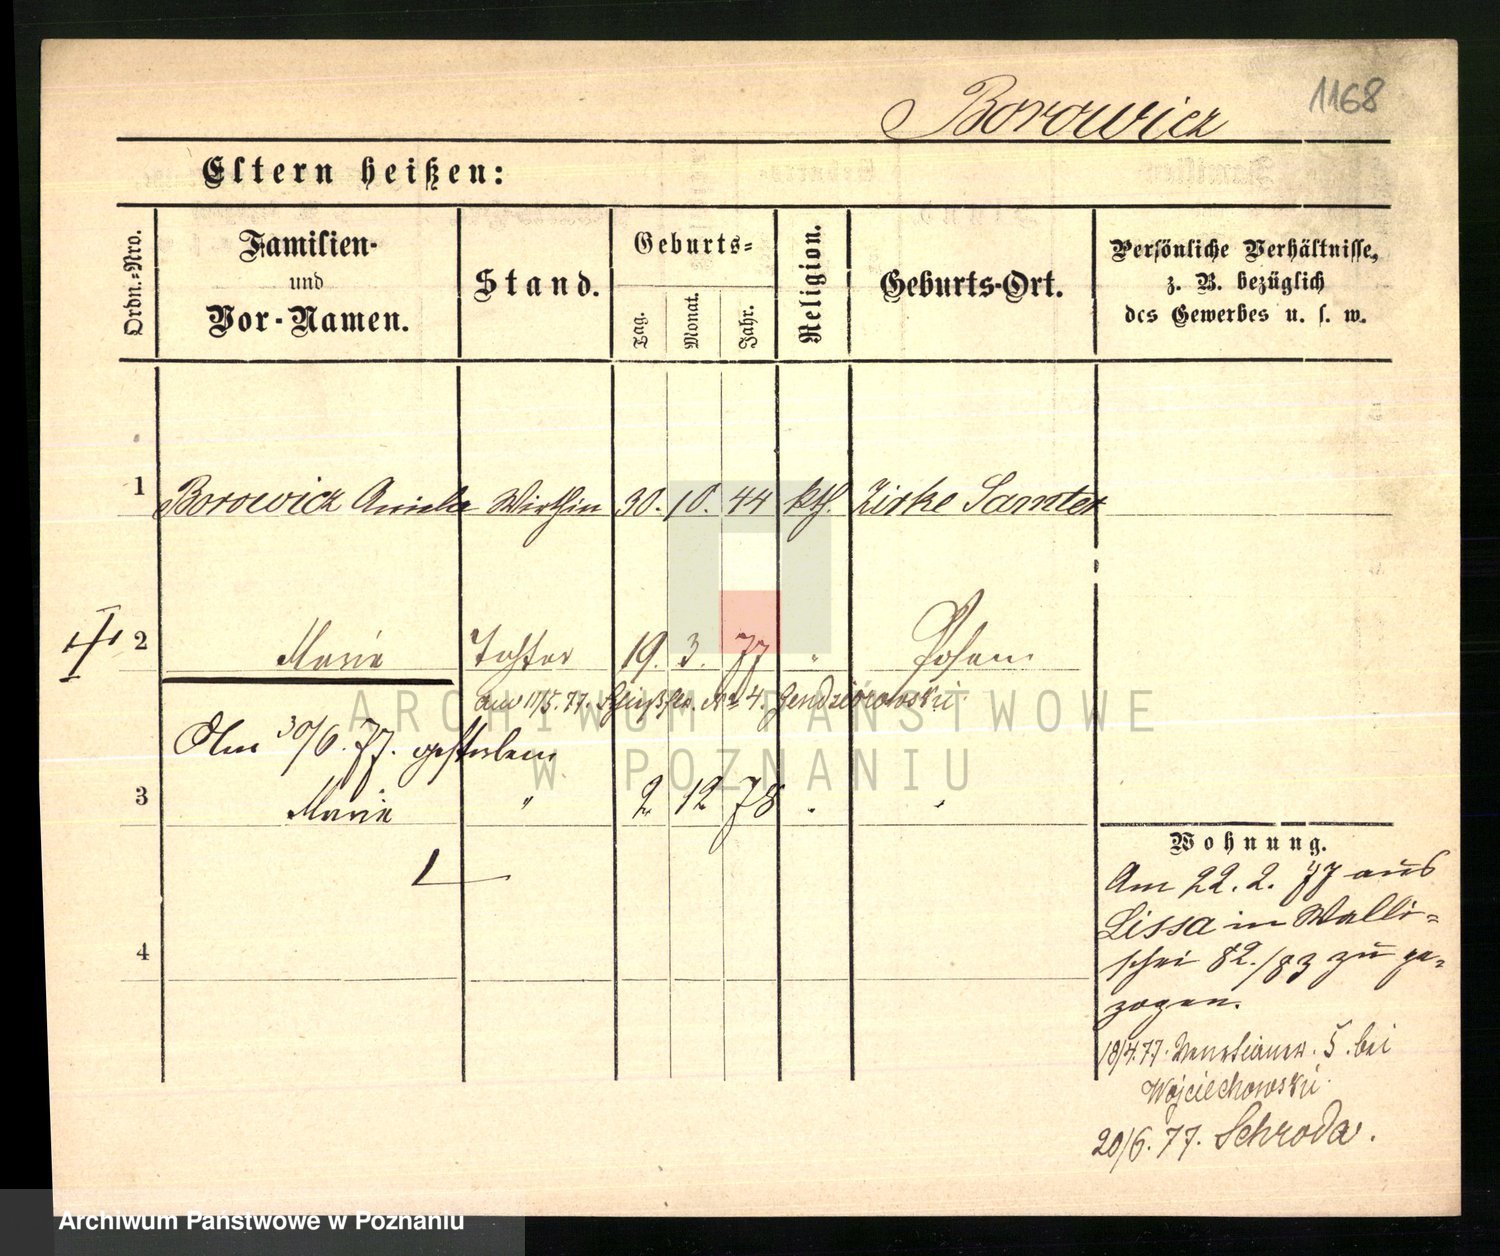 1168
Borowicz
Eltern heißen:
Ordn.-Nro.
Familien-
und
Vor-Namen.
Stand.
Geburts-
Tag.
Monat.
Jahr.
Religion.
Geburts-Ort.
Persönliche Verhältnisse,
z. B. bezüglich
des Gewerbes u. s. w.
1 Borowicz Wirthin 30. 10. 44 kth. Zirke Samter
2 Marie Tochter 19. 3. 77 " Posen
am 11/5. 77. Schießstr. No 4. Gendziorowski
Am 30/6. 77. gestorben
3 Marie " 2 12 78 " "
4
Wohnung.
Am 22. 2. 77 aus
Lissa in Walli-
schei 82./83 zu ge-
zogen.
18/4 77. Venetianer. 5. bei
Wojciechowski.
20/6. 77. Schroda.
ARCHIWUM PAŃSTWOWE
W POZNANIU
Archiwum Państwowe w Poznaniu